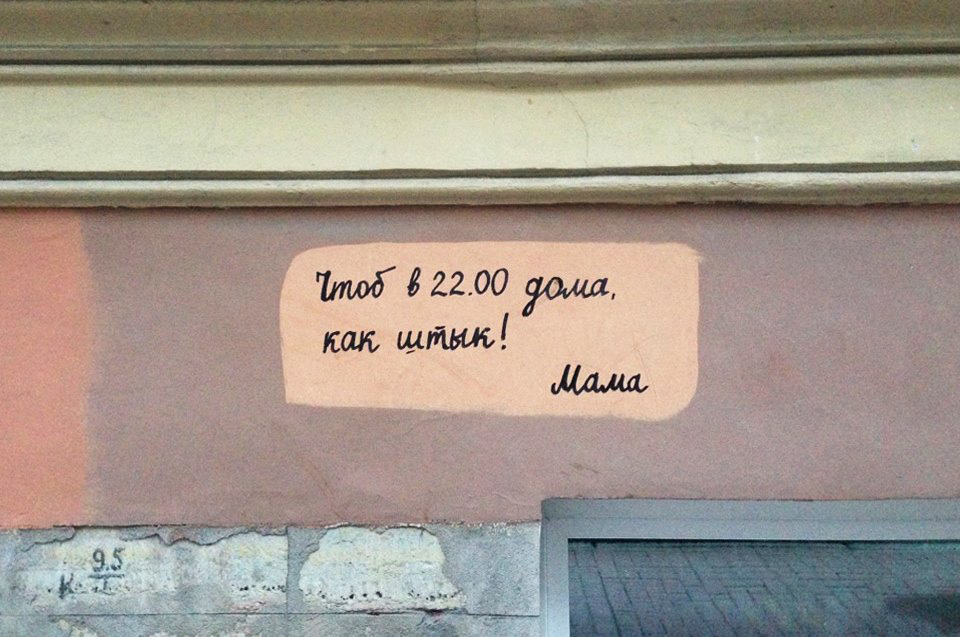 Чтоб в 22.00 дома,
как штык!
Мама
9.5
К